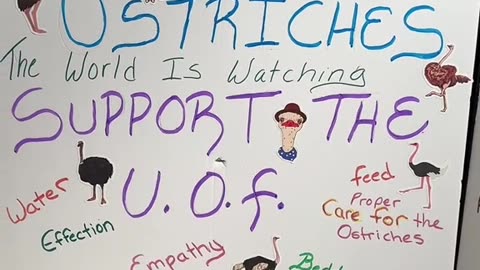 OSTRICHES
The World Is Watching
SUPPORT THE
U.O.f.
Water
Effection
Empathy
feed
Proper
Care for the
Ostriches